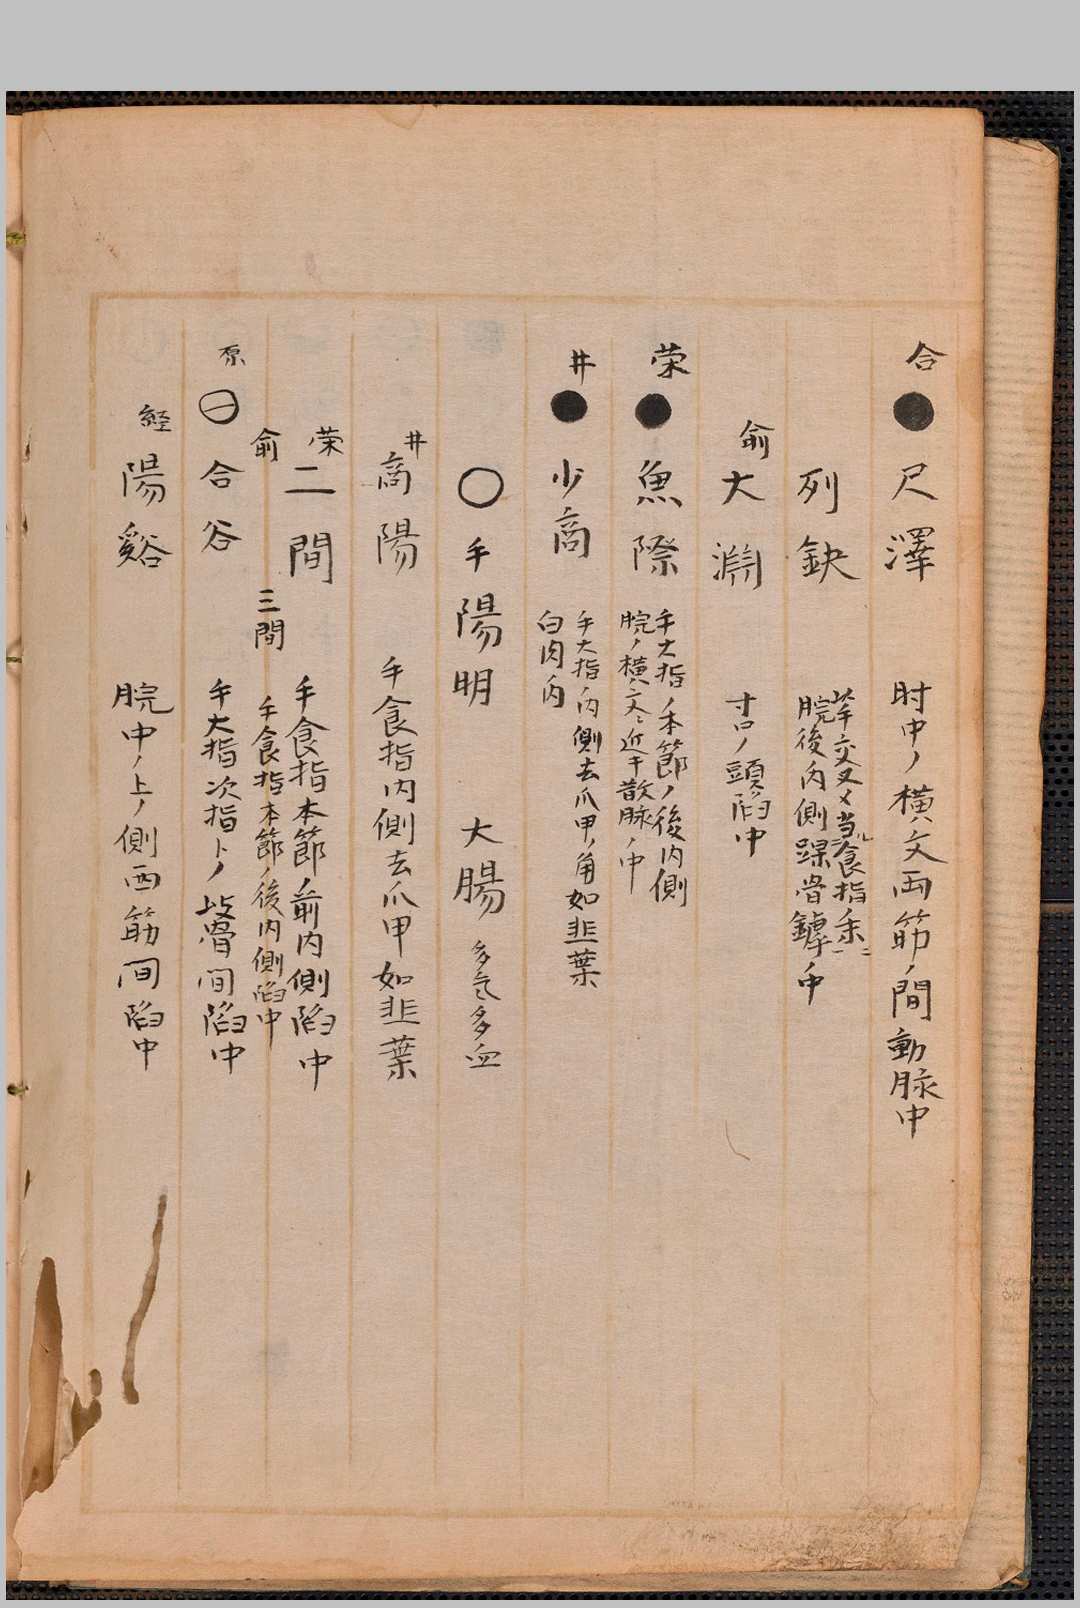 合
● 尺澤 肘中ノ横文両筋ノ間動脉中
列缺
交叉〆当ル食指
腕後内側踝骨罅中
兪
大淵 寸口ノ頭陷中
荣
● 魚際
手大指ノ本節ノ後内側
腕ノ横文ニ近キ散脉ノ中
井
● 少商
手大指ノ内側去爪甲ノ角如韭葉
白肉内
○ 手陽明 大腸 多气多血
井
商陽 手食指内側去爪甲如韭葉
荣
二間 手食指本節ノ前内側陷中
兪
三間 手食指本節ノ後内側陷中
原
合谷 手大指次指トノ岐骨间陷中
経
陽谿 腕中ノ上ノ側両筋间陷中